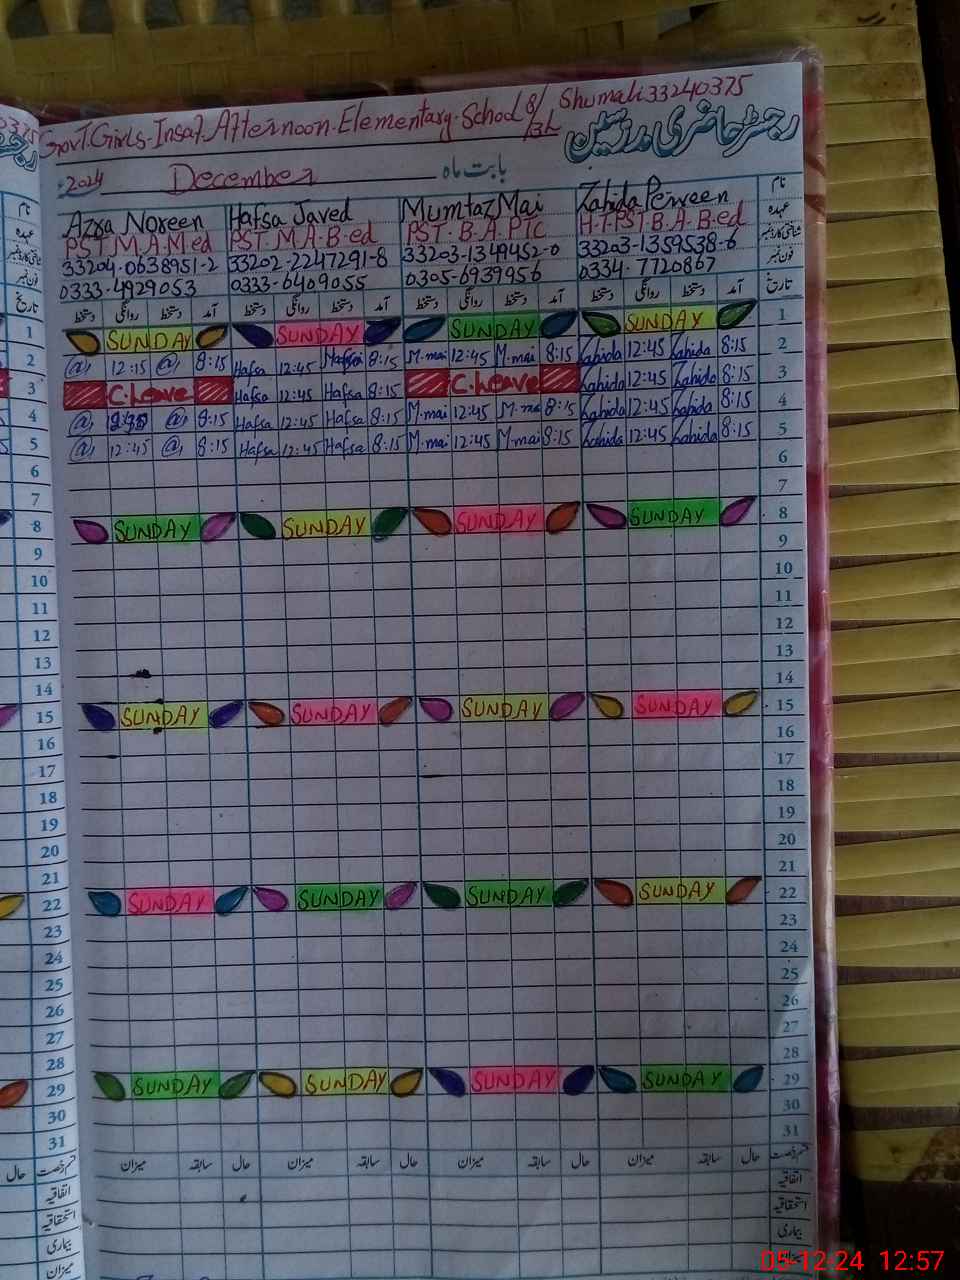 Govt. Girls. Insaf. Afternoon. Elementary. School 8/3L Shumali 33240375
رجسٹر حاضری مدرسین
2024ء December بابت ماہ
Azra Noreen Hafsa Javed Mumtaz Mai Zahida Perveen نام
PST. M.A. M.ed PST. M.A. B.ed PST. B.A. PTC H.T. PST. B.A. B.ed عہدہ
33204-0638951-2 33202-2247291-8 33203-1349452-0 33203-1359538-6 شناختی کارڈ نمبر
0333-4929053 0333-6409055 0305-6939956 0334-7720867 فون نمبر
دستخط روانگی دستخط آمد دستخط روانگی دستخط آمد دستخط روانگی دستخط آمد دستخط روانگی دستخط آمد تاریخ
1 SUNDAY SUNDAY SUNDAY SUNDAY 1
2 12:15 8:15 Hafsa 12:45 8:15 M.mai 12:45 M.mai 8:15 Zahida 12:45 Zahida 8:15 2
3 C.Leave Hafsa 12:45 Hafsa 8:15 C.Leave Zahida 12:45 Zahida 8:15 3
4 8:15 Hafsa 12:45 Hafsa 8:15 M.mai 12:45 M.mai 8:15 Zahida 12:45 Zahida 8:15 4
5 12:45 8:15 Hafsa 12:45 Hafsa 8:15 M.mai 12:45 M.mai 8:15 Zahida 12:45 Zahida 8:15 5
6 6
7 7
8 SUNDAY SUNDAY SUNDAY SUNDAY 8
9 9
10 10
11 11
12 12
13 13
14 14
15 SUNDAY SUNDAY SUNDAY SUNDAY 15
16 16
17 17
18 18
19 19
20 20
21 21
22 SUNDAY SUNDAY SUNDAY SUNDAY 22
23 23
24 24
25 25
26 26
27 27
28 28
29 SUNDAY SUNDAY SUNDAY SUNDAY 29
30 30
31 31
قسم رخصت میزان سابقہ حال میزان سابقہ حال میزان سابقہ حال میزان سابقہ حال قسم رخصت
اتفاقیہ اتفاقیہ
استحقاقیہ استحقاقیہ
بیماری بیماری
میزان میزان
05-12-24 12:57